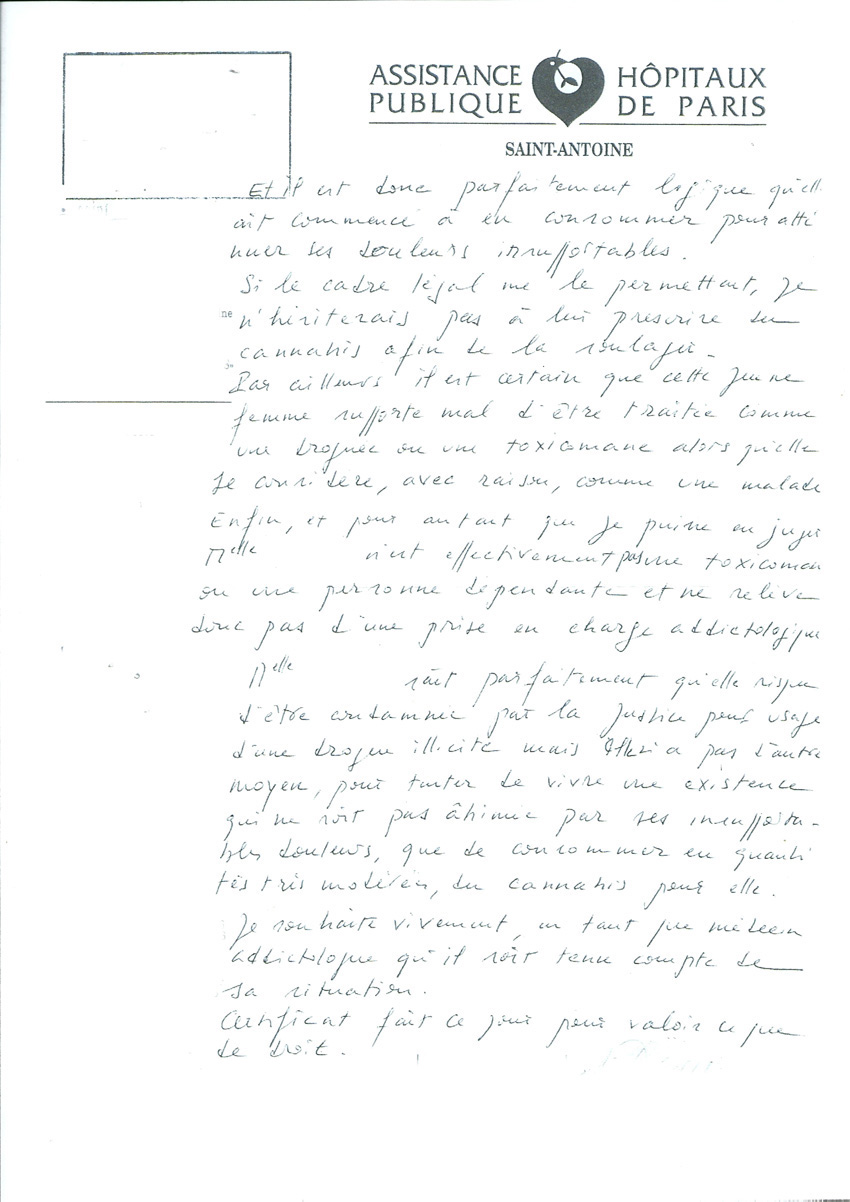 ASSISTANCE PUBLIQUE HÔPITAUX DE PARIS
SAINT-ANTOINE
Et il est donc parfaitement logique qu'elle
ait commencé à en consommer pour atté
nuer ses douleurs insupportables.
Si le cadre légal me le permettait, je
ne n'hésiterais pas à lui prescrire du
cannabis afin de la soulager.
Par ailleurs il est certain que cette jeune
femme supporte mal d'être traitée comme
une droguée ou une toxicomane alors qu'elle
se considère, avec raison, comme une malade
Enfin, et pour autant que je puisse en juger
Melle n'est effectivement pas une toxicomane
ou une personne dépendante et ne relève
donc pas d'une prise en charge addictologique
Melle sait parfaitement qu'elle risque
d'être condamnée par la justice pour usage
d'une drogue illicite mais elle n'a pas d'autre
moyen, pour tenter de vivre une existence
qui ne soit pas abimée par ses insupporta-
bles douleurs, que de consommer en quanti
tés très modérées, du cannabis pour elle.
Je souhaite vivement, en tant que médecin
addictologue qu'il soit tenu compte de
sa situation.
Certificat fait ce jour pour valoir ce que
de droit.